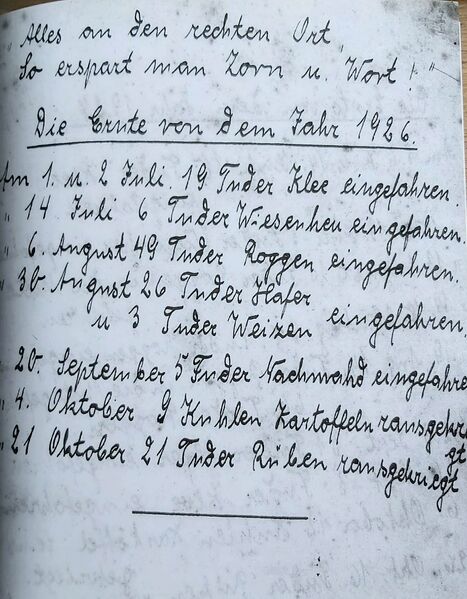 „Alles an den rechten Ort„
So erspart man Zorn u. Wort!"
Die Ernte von dem Jahr 1926.
Am 1. u. 2 Juli. 19 Fuder Klee eingefahren.
" 14 Juli 6 Fuder Wiesenheu eingefahren.
" 6. August 49 Fuder Roggen eingefahren.
" 30. August 26 Fuder Hafer
u 3 Fuder Weizen eingefahren.
" 20. September 5 Fuder Nachmahd eingefahre
" 4. Oktober 9 Kuhlen Kartoffeln rausgekrie
gt
" 21 Oktober 21 Fuder Rüben rausgekriegt